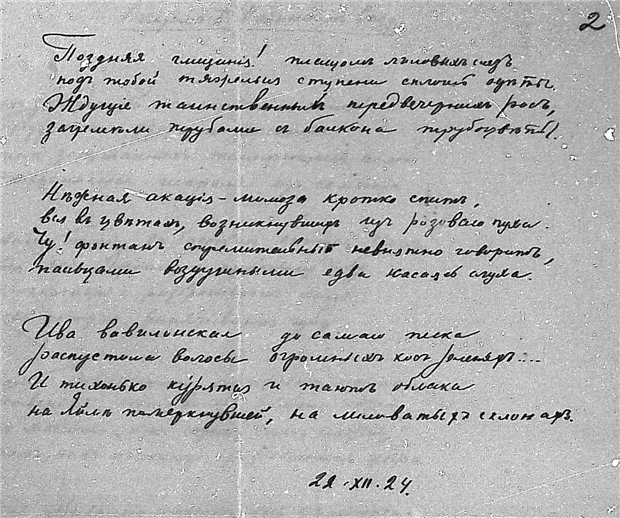 2
Поздняя глицинія! плащомъ лиловыхъ
подъ тобой тяжелыя ступени сплошь одѣты.
Ждущіе таинственныхъ передвечернихъ росъ,
загремѣли трубами съ балкона трубоцвѣты.
Нѣжная акація - мимоза кротко спитъ,
вся въ цвѣтахъ, возникнувшихъ изъ розоваго пуха.
Чу! фонтанъ стремительный невнятно говоритъ,
пальцами воздушными едва касаясь слуха.
Ива вавилонская до самаго песка
распустила волосы огромныхъ косъ зеленыхъ....
И тихонько курятся и таютъ облака
на Яйлѣ померкнувшей, на лиловатыхъ склонахъ.
22.XII.24.